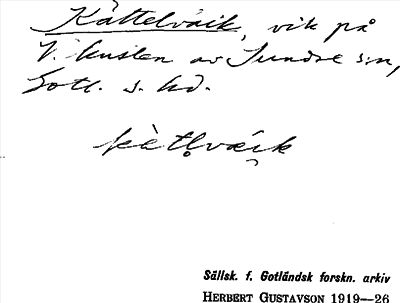 Kättelvaik, vik på
V. kusten av Sundre s:n,
Gotl. s. hd.
kètlváik
Sällsk. f. Gotländsk forskn. arkiv
HERBERT GUSTAVSON 1919—26